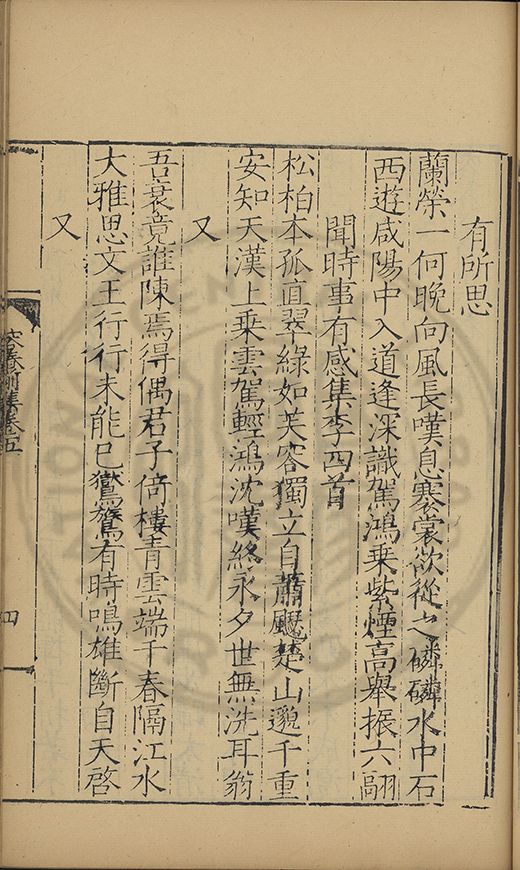 有所思
蘭榮一何晚向風長嘆息褰裳欲從之磷磷水中石
西遊咸陽中入道逢深識駕鴻乘紫煙高舉振六翮
聞時事有感集李四首
松柏本孤直翠綠如芙容獨立自蕭飈楚山邈千重
安知天漢上乘雲駕輕鴻沈嘆終永夕世無洗耳翁
又
吾衰竟誰陳焉得偶君子倚樓青雲端千春隔江水
大雅思文王行行未能已鸑鷟有時鳴雄斷自天啓
又
集卷五
四